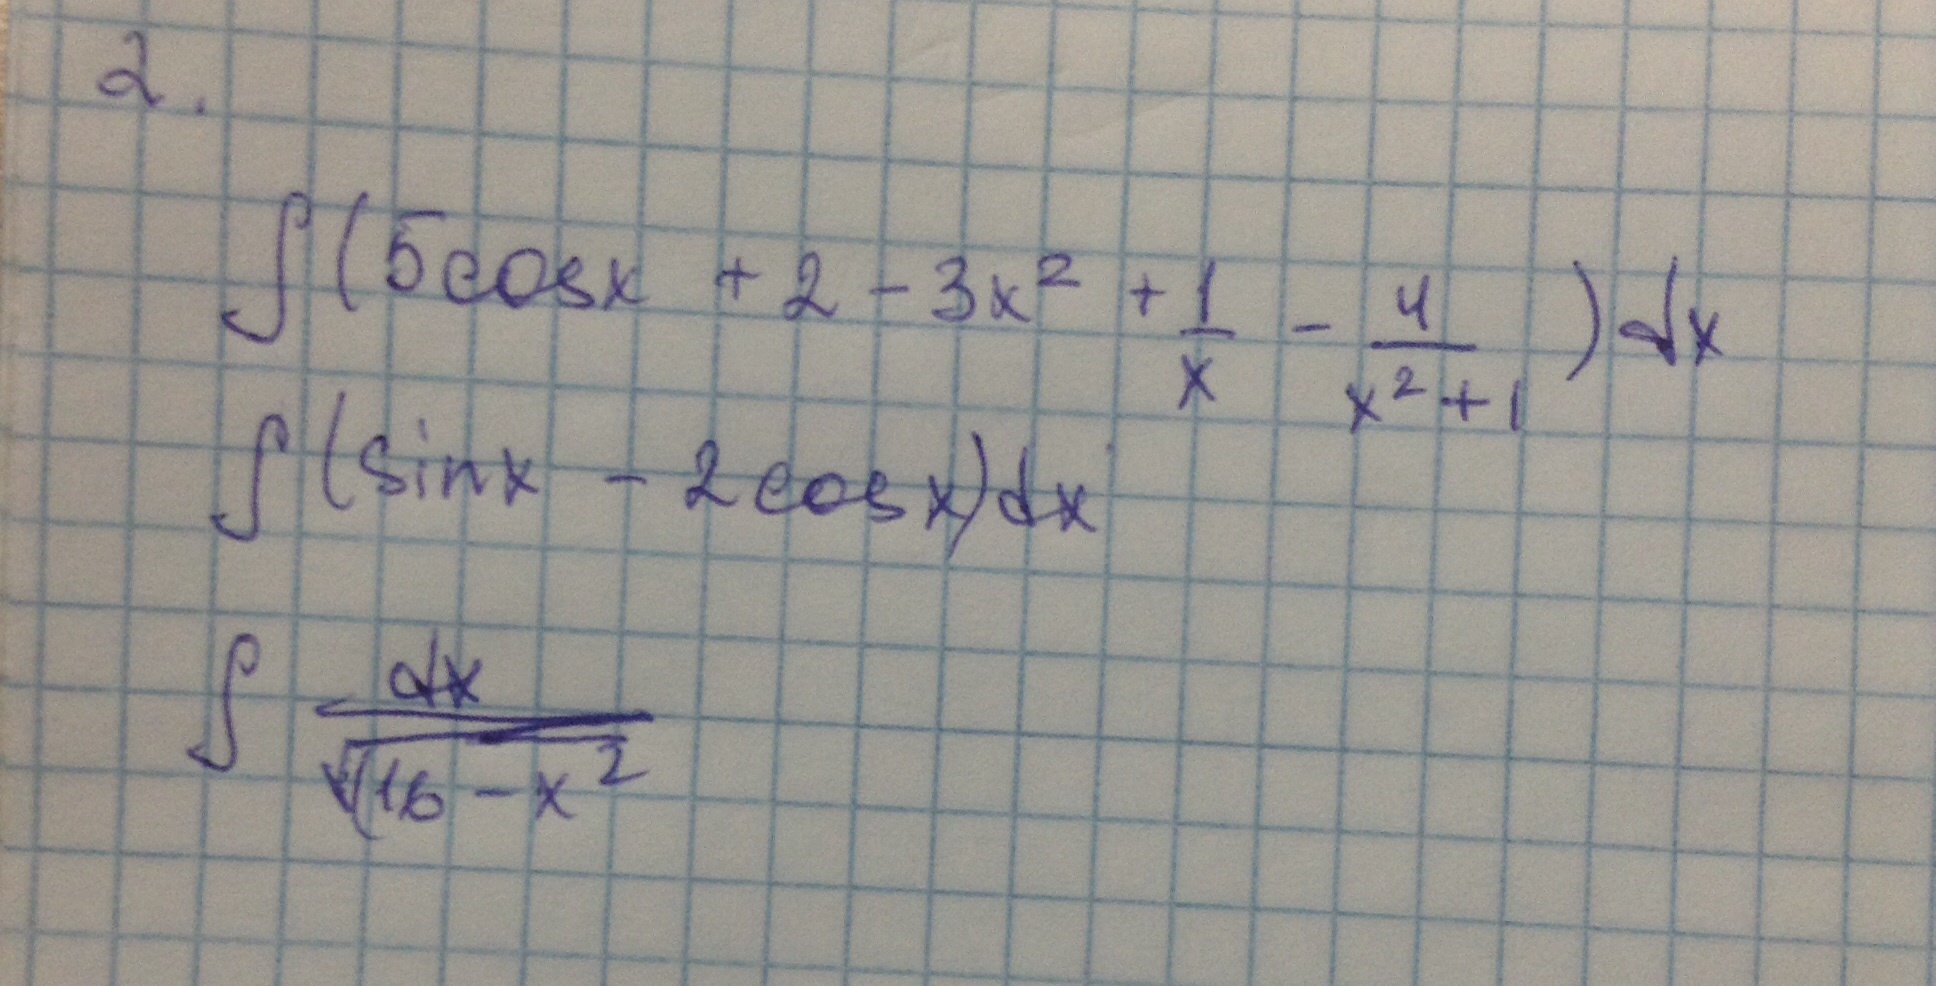 2.
∫(5cosx + 2 - 3x² + 1/x - 4/(x²+1))dx
∫(sinx - 2cosx)dx
∫ dx/√(16-x²)